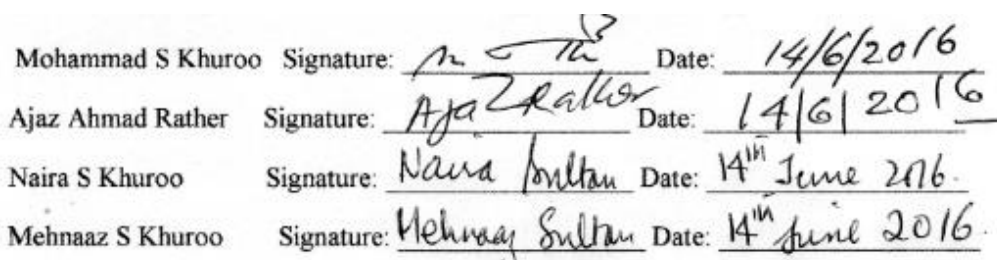 Mohammad S Khuroo Signature: Date: 14/6/2016
Ajaz Ahmad Rather Signature: Ajaz Rather Date: 14/6/2016
Naira S Khuroo Signature: Naira Sultan Date: 14th June 2016.
Mehnaaz S Khuroo Signature: Mehnaaz Sultan Date: 14th June 2016.